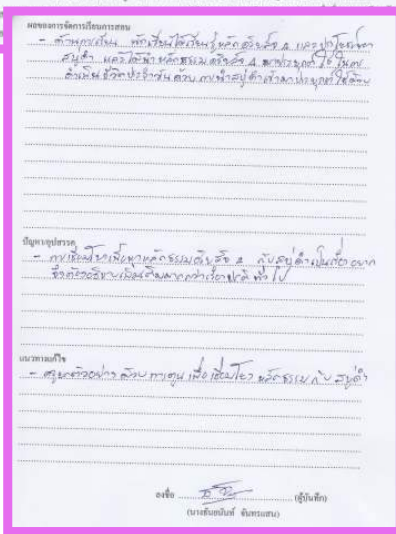 ผลของการจัดการเรียนการสอน
- ด้านการเรียน นักเรียนได้เรียนรู้หลักอริยสัจ 4 และประโยชน์ของ
สบู่ดำ และได้นำหลักธรรมอริยสัจ 4 มาประยุกต์ใช้ในการ
ดำเนินชีวิตประจำวันด้วย
ปัญหา/อุปสรรค
- การเชื่อมโยงเนื้อหาหลักธรรมอริยสัจ 4 กับสบู่ดำเป็นเรื่องยาก
จึงต้องอธิบายเพิ่มเติมมากกว่าเรื่องปกติทั่วไป
แนวทางแก้ไข
- ตัวอย่าง ด้วย การ์ตูน เพื่อเชื่อมโยง หลักธรรม กับ สบู่ดำ
ลงชื่อ (ผู้บันทึก)
(นางชันยนันท์ จันทรเสน)